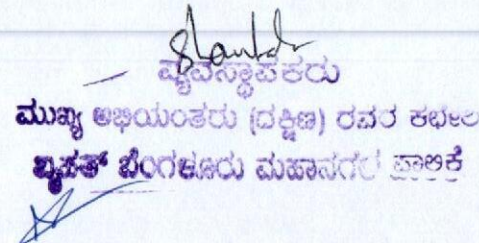 ವ್ಯವಸ್ಥಾಪಕರು
ಮುಖ್ಯ ಅಭಿಯಂತರು (ದಕ್ಷಿಣ) ರವರ ಕಛೇರಿ
ಬೃಹತ್ ಬೆಂಗಳೂರು ಮಹಾನಗರ ಪಾಲಿಕೆ